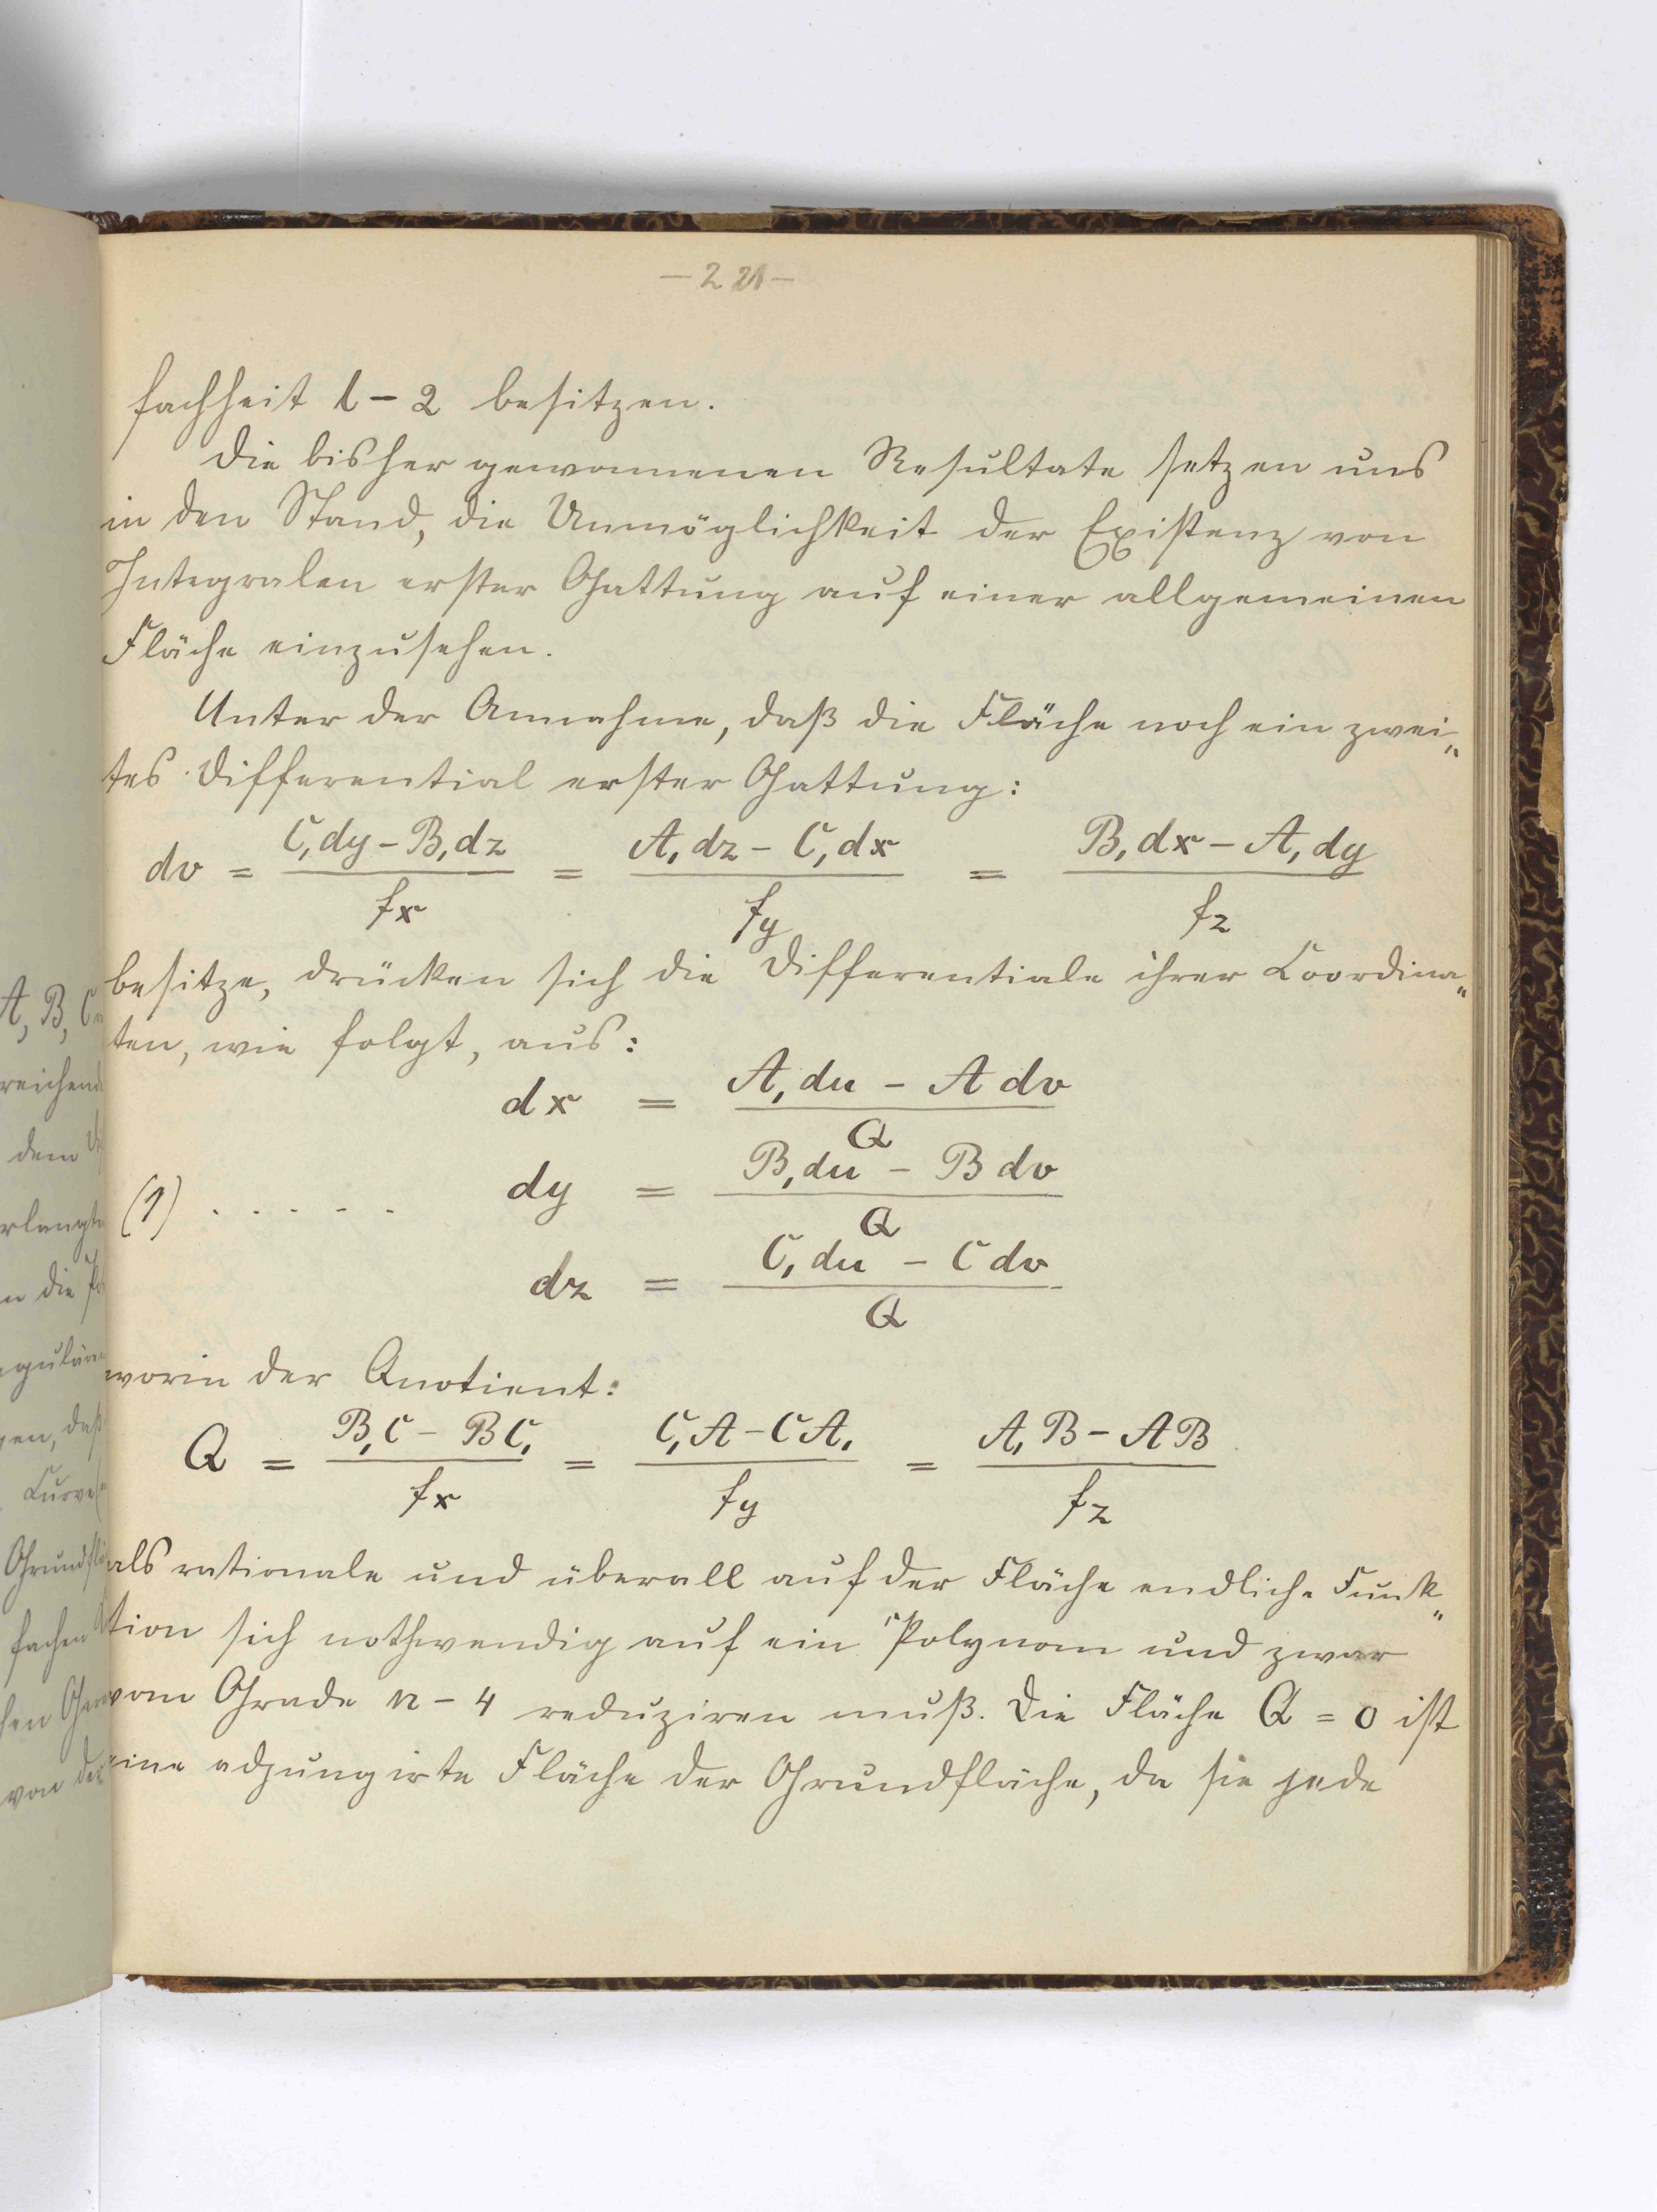 — 221 —
fachheit l – 2 besitzen.
Die bisher gewonnenen Resultate setzen uns
in den Stand, die Unmöglichkeit der Existenz von
Integralen erster Gattung auf einer allgemeinen
Fläche einzusehen.
Unter der Annahme, daß die Fläche noch ein zwei„
tes Differential erster Gattung:
dv = (C, dy – B, dz)/fx = (A, dz – C, dx)/fy = (B, dx – A, dy)/fz
besitze, drücken sich die Differentiale ihrer Coordina„
ten, wie folgt, aus:
dx = (A, du – A dv)/Q
(1) . . . . . dy = (B, du – B dv)/Q
dz = (C, du – C dv)/Q
worin der Quotient:
Q = (B, C – B C,)/fx = (C, A – C A,)/fy = (A, B – A B)/fz
als rationale und überall auf der Fläche endliche Funk„
tion sich nothwendig auf ein Polynom und zwar
vom Grade n – 4 reduziren muß. Die Fläche Q = 0 ist
eine adjungirte Fläche der Grundfläche, da sie jede
A, B, C
dem
n die
gen, daß
Curve
fachen
von der